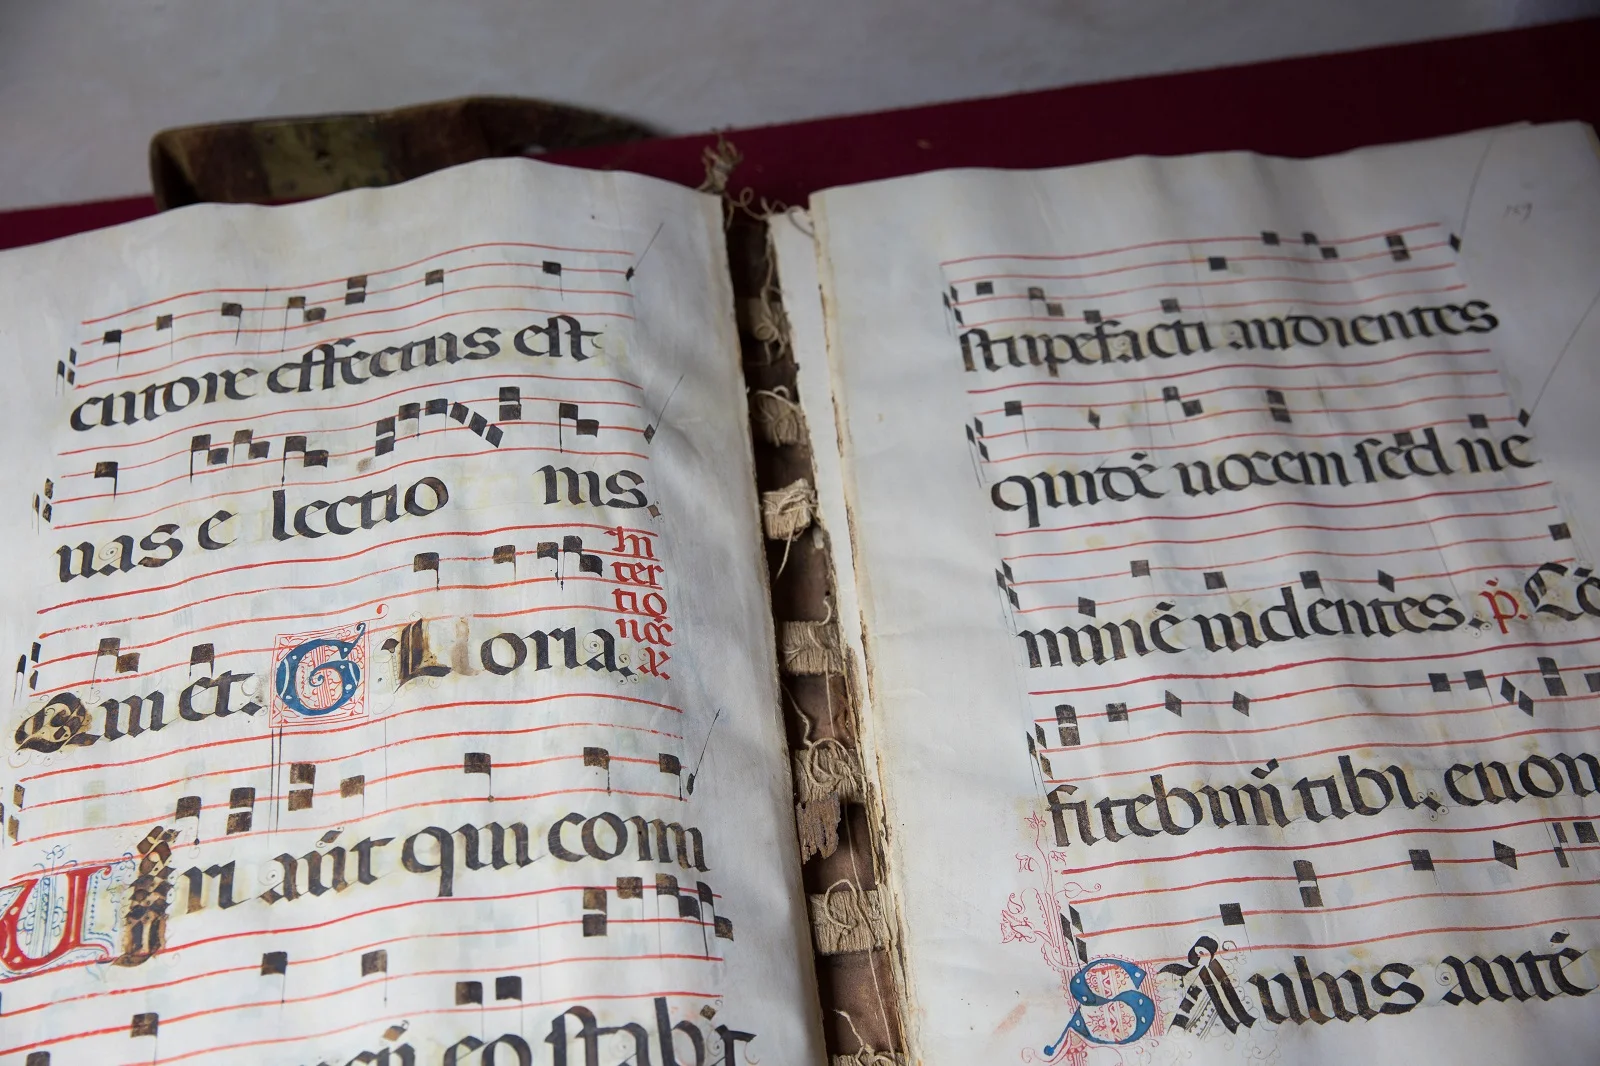 cutore effectus est
uas e lectio nis.
Qui et. GLoria.
in
ter
tio
nas
Viri aūt qui comi
eo stabāt
159
stupefacti audientes
quidē uocem sed nē
minē uidentes. p̄. Cō
fitebimur̄ tibi. euou
SAulus autē